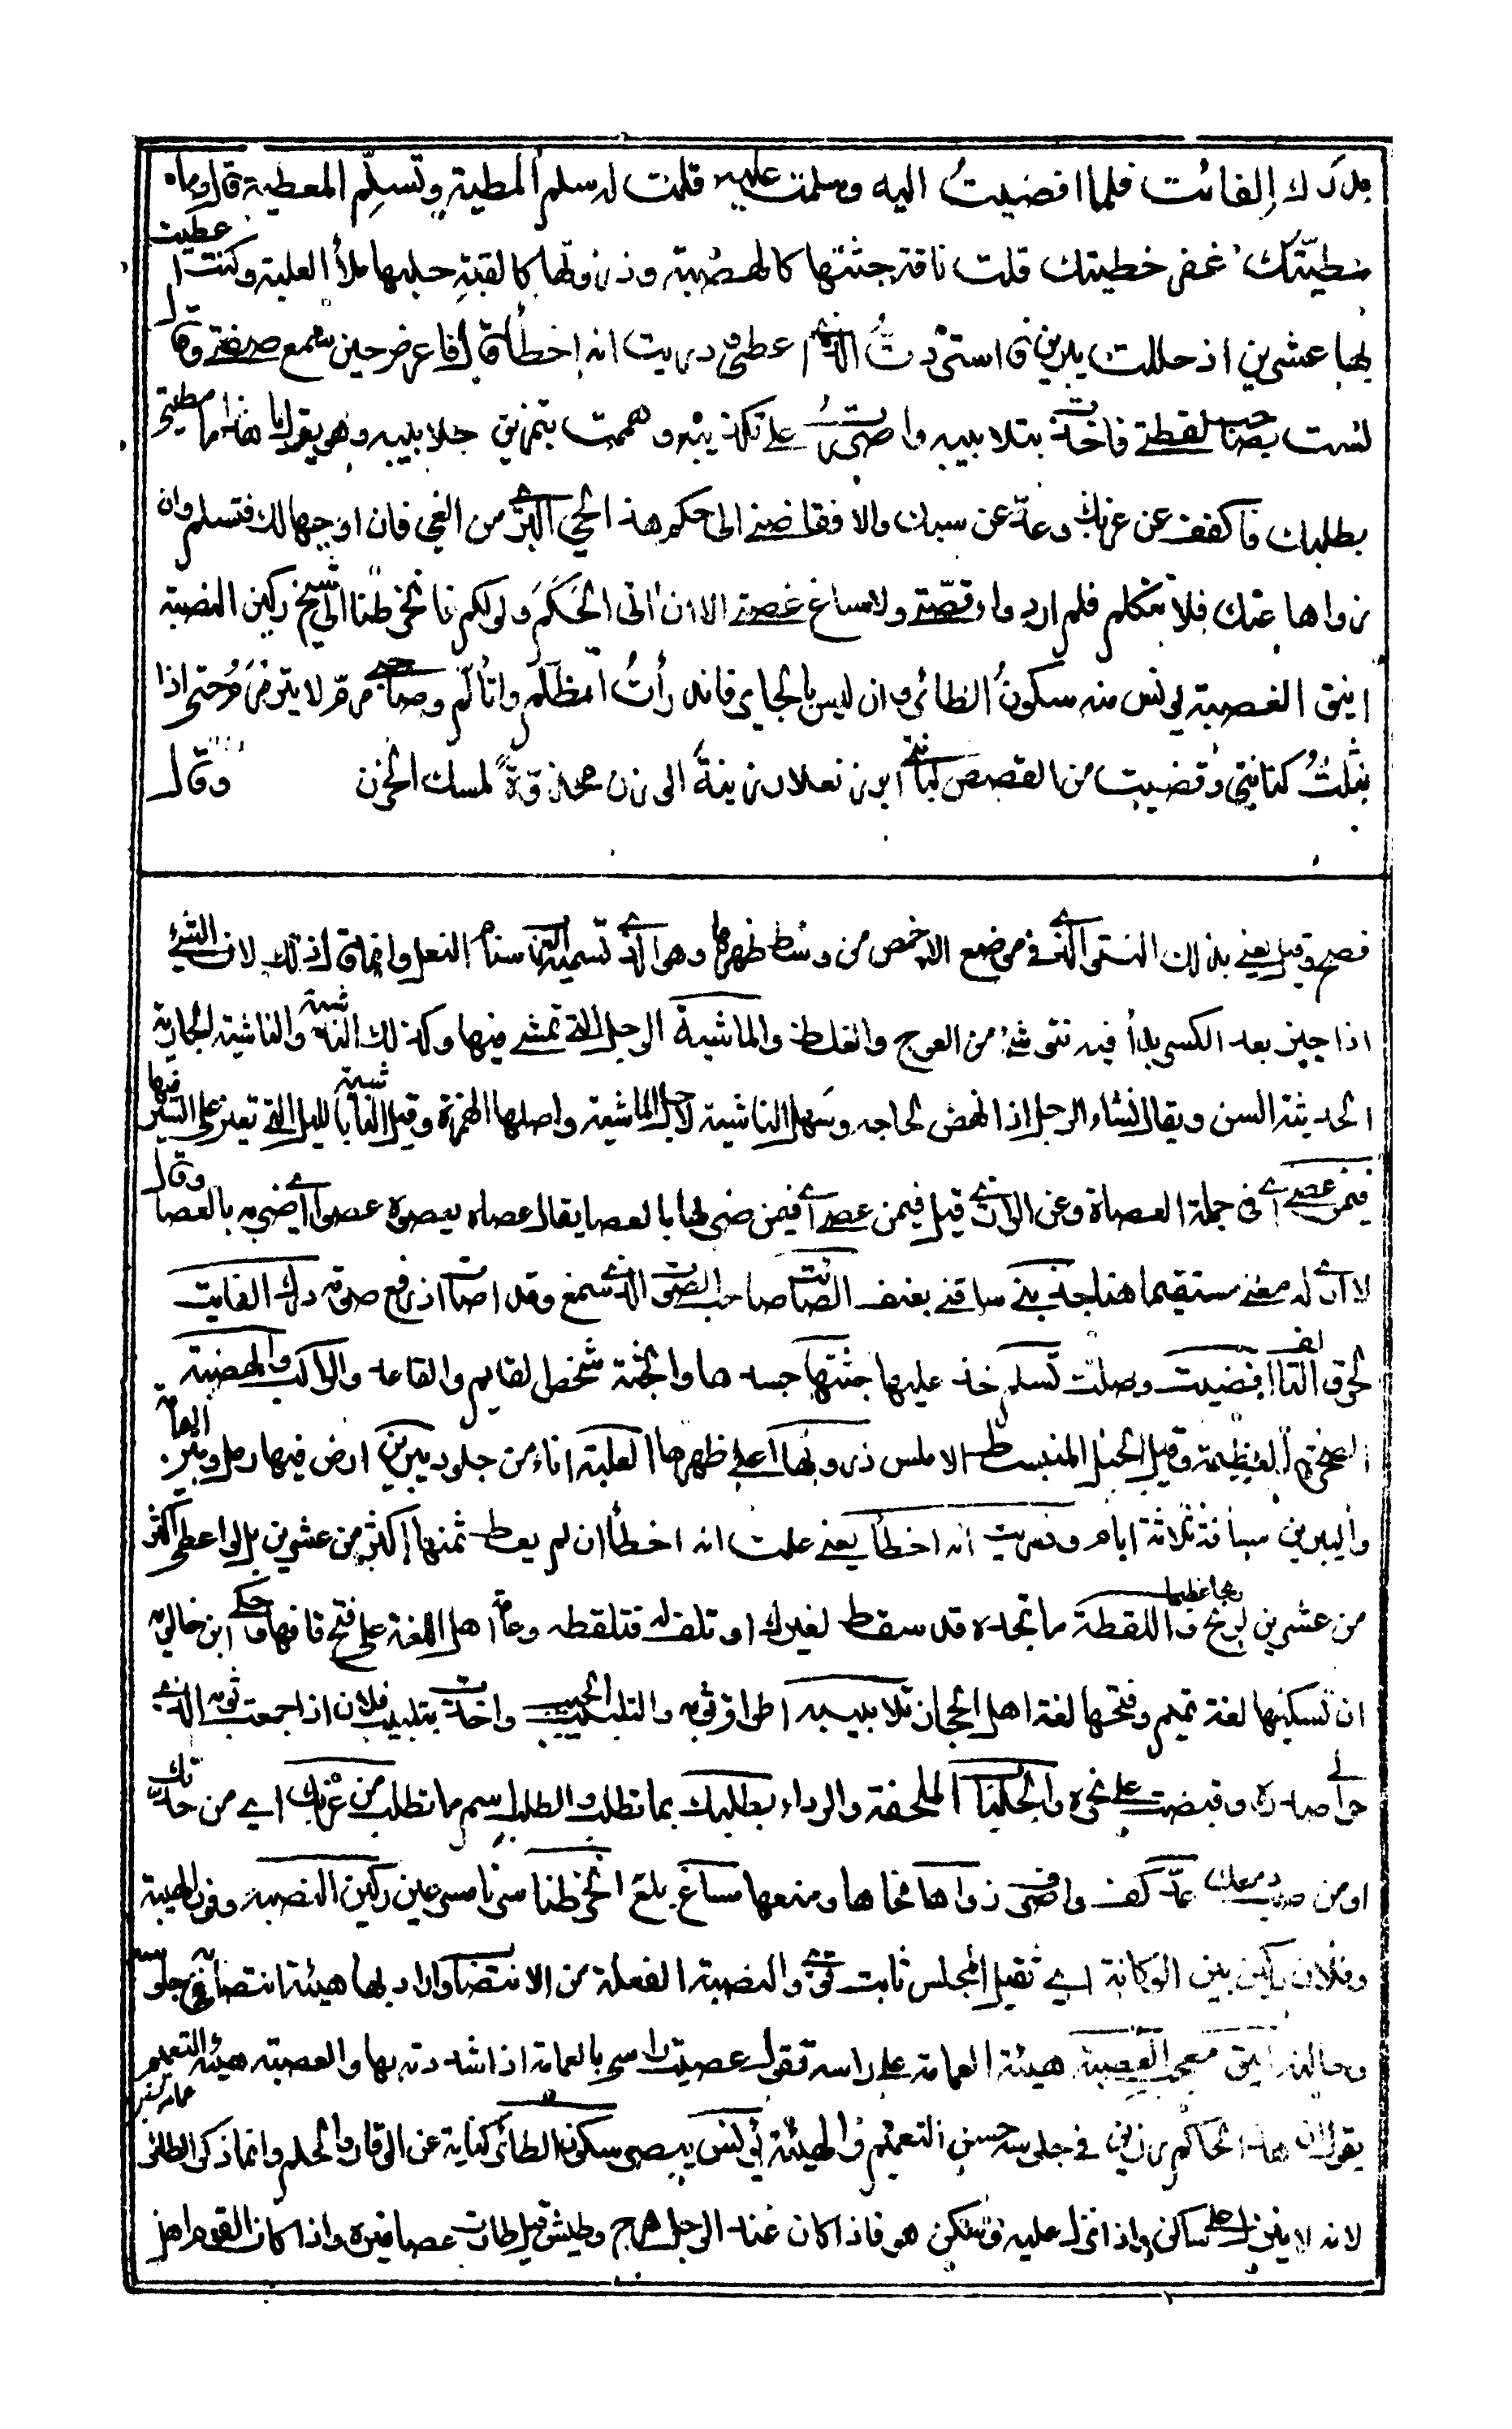 بدرك الفائت فلما افضيت اليه وسلمت عليه قلت له سلم المطية وتسلم العطية قال وما
مطيتك غفر خطيتك قلت ناقة جثتها كالهضبة وذروتها كالقبة حلبها ملأ العلبة وكنت اعطيت
بها عشرين اذ حللت يبرين فاستزدت الذي اعطى ودريت انه اخطأ قال فاعرض حين سمع صفتي وقال
لست بصاحب لقطتي فاخذت بتلابيبه واصررت على تكذيبه وهممت بتمزيق جلابيبه وهو يقول يا هذا ما مطيتي
بطلبك فاكفف عن غربك وعد عن سبك والا فقاضني الى حكم هذا الحي البري من الغي فان اوجبها لك فتسلم وان
زواها عنك فلا تتكلم فلم ار دواء قصتي ولا مساغ غصتي الا ان اتي الحكم ولو لكم فانخرطنا الى شيخ ركين النصبة
انيق العصبة يونس منه سكون الطائر وان ليس بالجائر فاندرأت اتظلم واتألم وصاحبي مرم لا يترمرم حتى اذا
نثلت كنانتي وقضيت من القصص لبانتي ابرز نعلا رزينة الوزن محذوة لمسلك الحزن وقال
فصح وقيل يعني بذلك النتو الذي في موضع الاخمص من وسط ظهرها وهو الذي تسميه العامة سنام النعل وانما قال ذلك لان الشيء
اذا جبر بعد الكسر بدأ فيه نتو شيء من العوج والغلظ والماشية الرجل التي تمشي فيها وكذلك الناشية والناشية الجارية
الحديثة السن ويقال نشاء الرجل اذا نهض لحاجه وسهل الناشية لاجل الماشية واصلها الهمزة وقيل الناشية بالليل التي تعين على السير فيها
فيمن عصى اي في جملة العصاة وعن الرازي قيل فيمن عصى اي فيمن ضربها بالعصا يقال عصاه يعصوه عصوا اي ضربه بالعصا وقال
لا ارى له معنى مستقيما هنا جذبني ساقني بعنف الصائت صاحب الصوت الذي سمع وقد اصات اذ رفع صوته درك الفايت
لحوق التالف افضيت وصلت تسلم خذ عليها جثتها جسدها والجثة شخص القايم والقاعد والراكب والهضبة
الصخرة العظيمة وقيل الجبل المنبسط الاملس ذروتها اعلى ظهرها العلبة اناء من جلود يبرين ارض فيها رمل وبين العامة
واليبرين مسافة ثلاثة ايام ودريت انه اخطأ يعني علمت انه اخطأ ان لم يعط ثمنها اكثر من عشرين بل لو اعطى اكثر
من عشرين لربح واللقطة ما تجده قد سقط لغيرك او تلف له فتلقطه وعامة اهل اللغة على فتح قافها وحكى ابن خالويه
ان تسكينها لغة تميم وفتحها لغة اهل الحجاز تلابيبه اطواق ثوبه والتلبيب الجيب واخذت بتلبيب فلان اذا جمعت ثوبه الذي
على صدره وقبضت على نحره والجلباب الملحفة والرداء بطلبك بما تطلب والطلب اسم ما تطلب من غربك اي من حدتك
او من صب دمعك عد كف واضرب زواها نحاها ومنعها مساغ بلع انخرطنا سرنا مسرعين ركين النصبة وقور الهيبة
وفلان ركين بين الركانة اي ثقيل المجلس ثابت قوي والنصبة الفعلة من الانتصاب وارد بها هيئة انتصابه في جلوسه
وحالته انيق معجب العصبة هيئة العمامة على راسه تقول عصبت راسي بالعمامة اذا شددته بها والعصبة هيئة التعميم
يقول ان هذا الحاكم رزين في جلوسه حسن التعميم والهيئة يونس يبصر سكون الطائر كناية عن الوقار والحلم وانما ذكر الطائر
لانه لا ينزل الا على ساكن واذا نزل عليه فسكن هو فاذا كان عند الرجل هرج وطيش قيل طارت عصافيره واذا كان القوم اهل